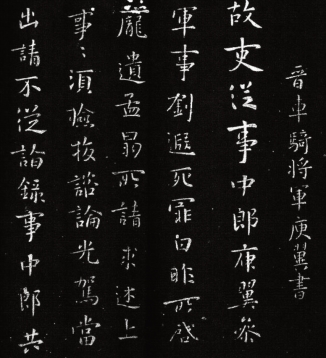 晉車騎将軍庾翼書
故吏從事中郎庾翼參
軍事劉遐死罪白昨所啓
龐遺孟昺所請求述上
事〻須撿挍諮論光駕當
出請不從諮録事中郎共